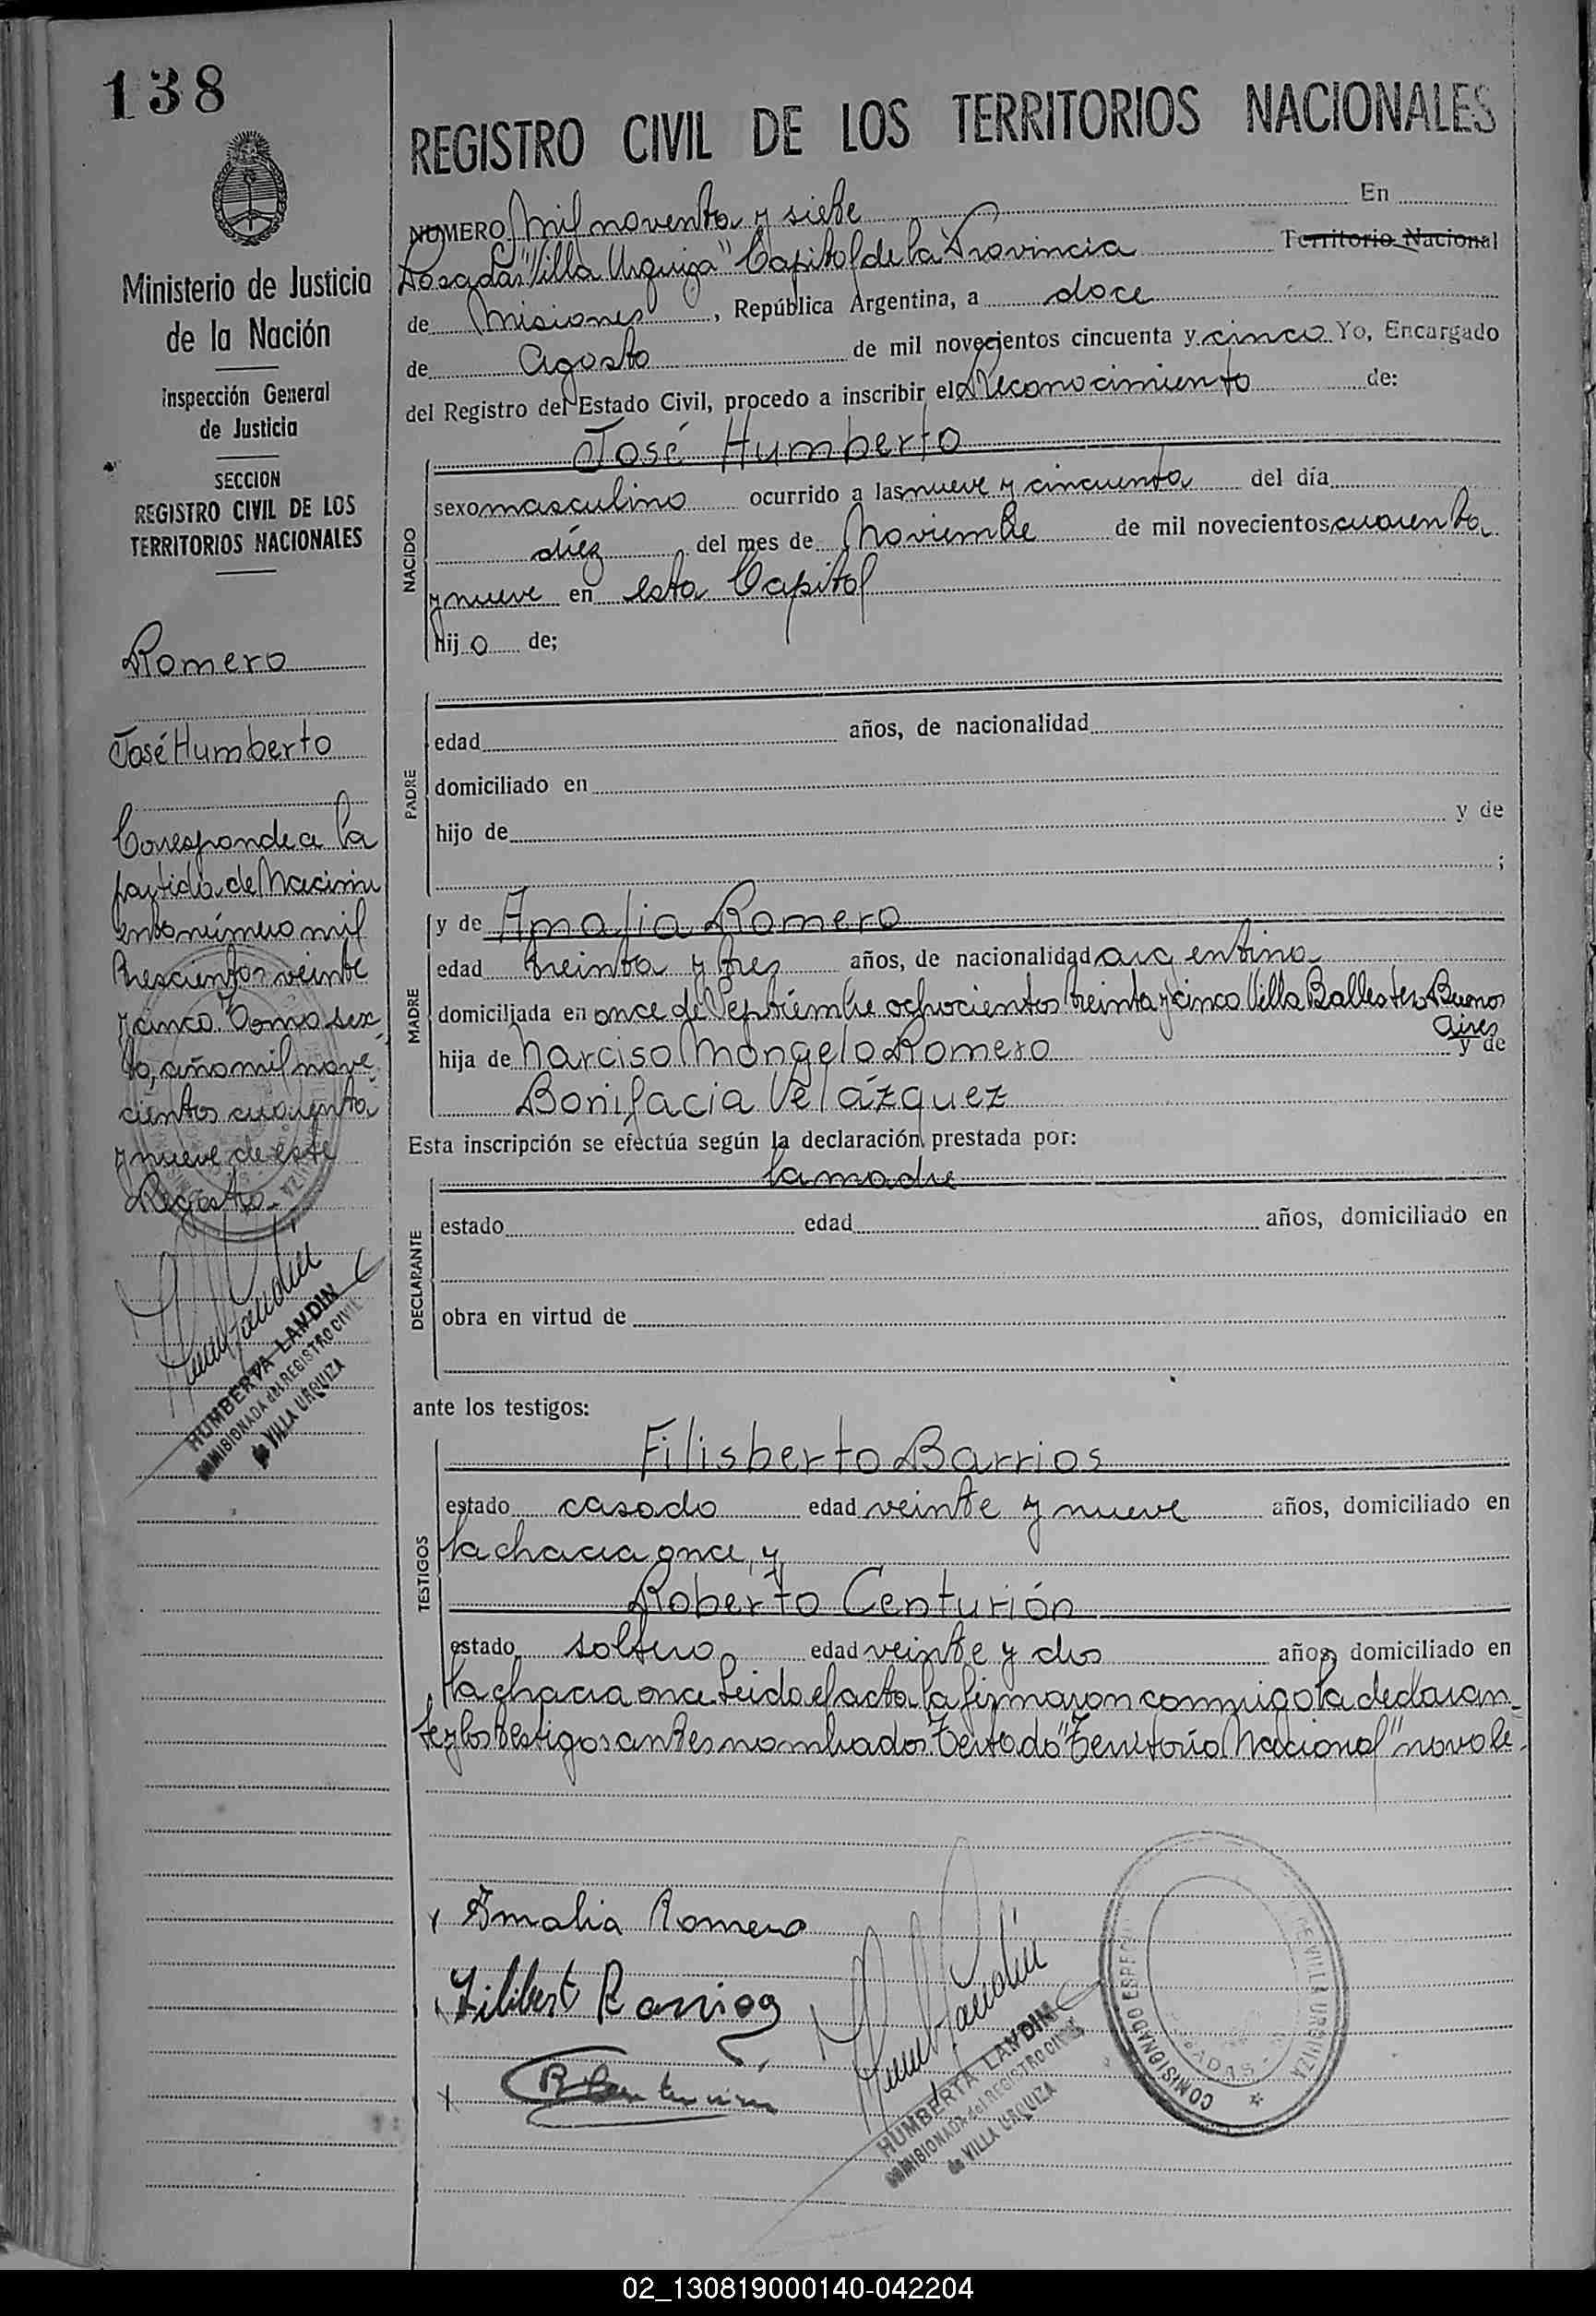 138
Ministerio de Justicia
de la Nación
Inspección General
de Justicia
SECCION
REGISTRO CIVIL DE LOS
TERRITORIOS NACIONALES
Romero
José Humberto
Corresponde a la
partida de Nacimi
ento número mil
trescientos veinte
y cinco. Tomo sex
to, año mil nove
cientos cuarenta
y nueve de este
Registro.-
HUMBERTA LANDIN
COMISIONADA del REGISTRO CIVIL
de VILLA URQUIZA
REGISTRO CIVIL DE LOS TERRITORIOS NACIONALES
NUMERO Mil noventa y siete En
Posadas "Villa Urquiza" Capital de la Provincia Territorio Nacional
de Misiones, República Argentina, a doce
de Agosto de mil novecientos cincuenta y cinco Yo, Encargado
del Registro del Estado Civil, procedo a inscribir el Reconocimiento de:
José Humberto
NACIDO
sexo masculino ocurrido a las nueve y cincuenta del día
diéz del mes de Noviembre de mil novecientos cuarenta
y nueve en esta Capital
hijo de;
PADRE
edad años, de nacionalidad
domiciliado en
hijo de y de
;
MADRE
y de Amalia Romero
edad treinta y tres años, de nacionalidad argentina
domiciliada en once de Septiembre ochocientos treinta y cinco Villa Ballester Buenos
Aires
hija de Narciso Mongelo Romero y de
Bonifacia Velázquez
Esta inscripción se efectúa según la declaración prestada por:
la madre
DECLARANTE
estado edad años, domiciliado en
obra en virtud de
ante los testigos:
TESTIGOS
Filisberto Barrios
estado casado edad veinte y nueve años, domiciliado en
la chacra once, y
Roberto Centurión
estado soltero edad veinte y dos años, domiciliado en
la chacra once. Leida el acta la firmaron conmigo la declaran-
te y los testigos antes nombrados. Testado "Territorio Nacional" no vale.-
Amalia Romero
Filibert Barrios
R Centurión
HUMBERTA LANDIN
COMISIONADA del REGISTRO CIVIL
de VILLA URQUIZA
COMISIONADO ESPECIAL DE VILLA URQUIZA
02_130819000140-042204